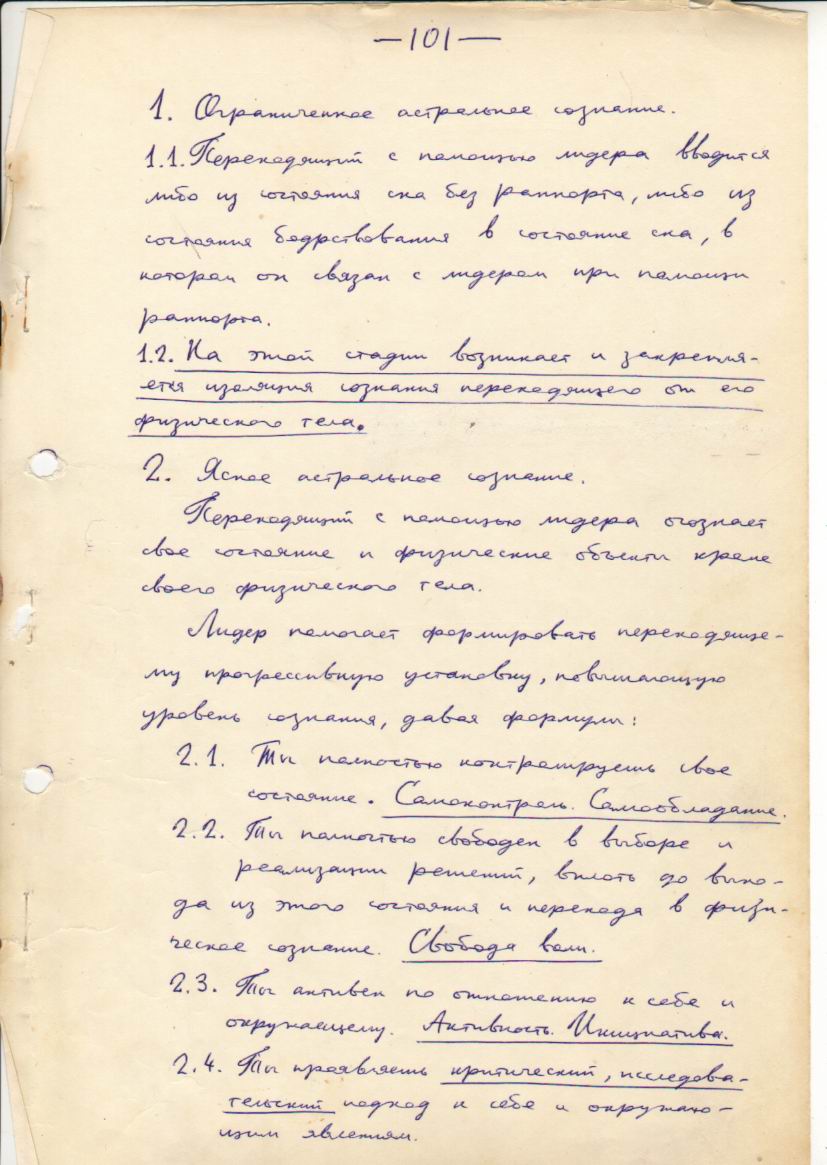 —101—
1. Ограниченное астральное сознание.
1.1. Переходящий с помощью лидера вводится
либо из состояния сна без раппорта, либо из
состояния бодрствования в состояние сна, в
котором он связан с лидером при помощи
раппорта.
1.2. На этой стадии возникает и закрепля-
ется изоляция сознания переходящего от его
физического тела.
2. Ясное астральное сознание.
Переходящий с помощью лидера осознает
свое состояние и физические объекты кроме
своего физического тела.
Лидер помогает формировать переходяще-
му прогрессивную установку, повышающую
уровень сознания, давая формулы:
2.1. Ты полностью контролируешь свое
состояние. Самоконтроль. Самообладание.
2.2. Ты полностью свободен в выборе и
реализации решений, вплоть до выхо-
да из этого состояния и перехода в физи-
ческое сознание. Свобода воли.
2.3. Ты активен по отношению к себе и
окружающему. Активность. Инициатива.
2.4. Ты проявляешь критический, исследова-
тельский подход к себе и окружаю-
щим явлениям.